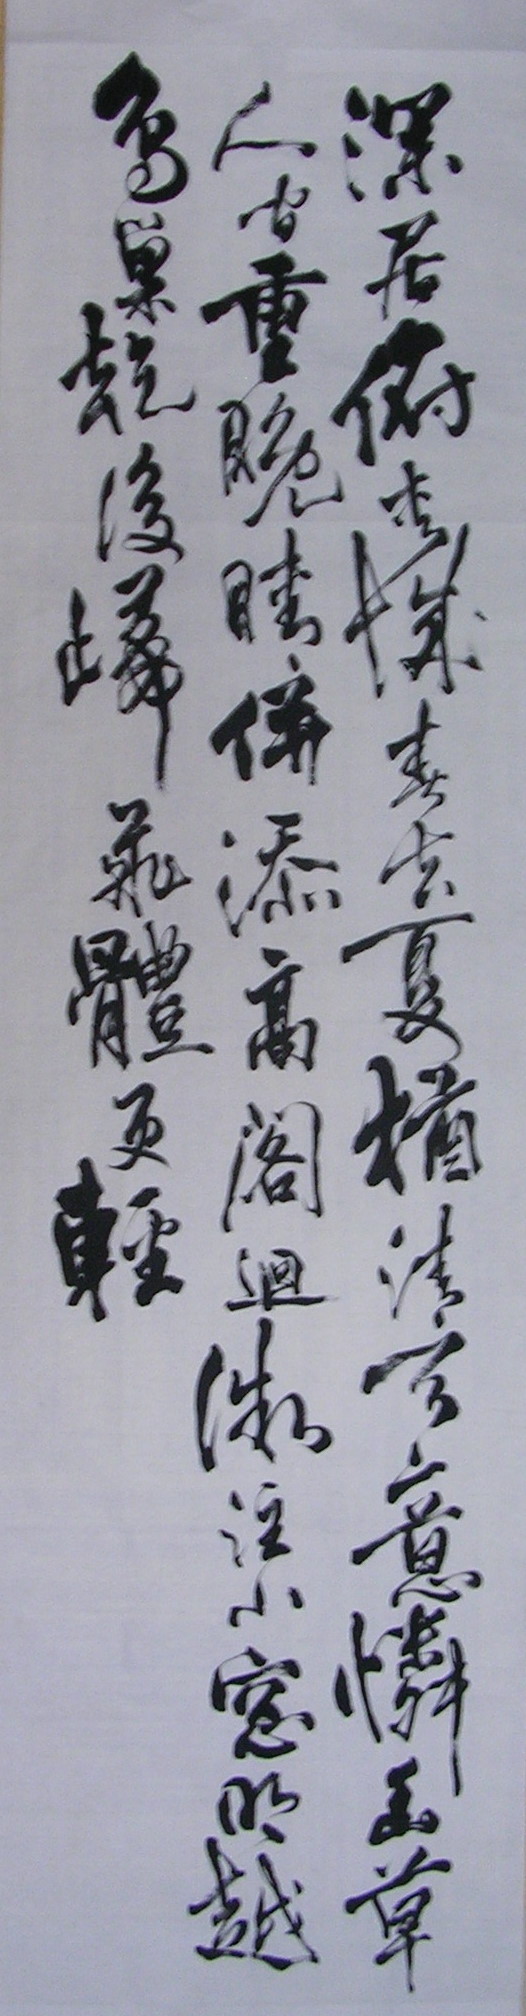 深居俯夾城春去夏猶清天意憐幽草
人間重晚晴併添高閣迥微注小窗明越
鳥巢乾後歸飛體更輕